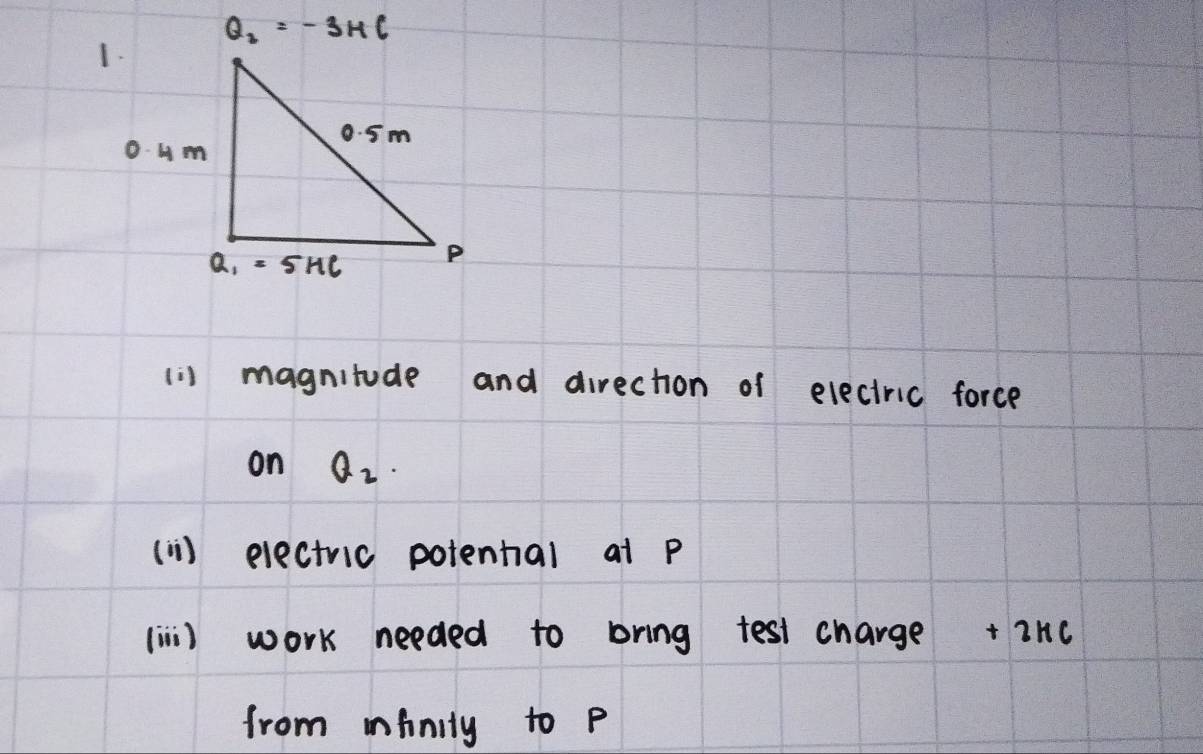 Q₂ = -3μC
1.
0.4m
0.5m
Q₁ = 5μC
P
(i) magnitude and direction of electric force
on Q₂.
(ii) electric potential at P
(iii) work needed to bring test charge +2μC
from infinity to P